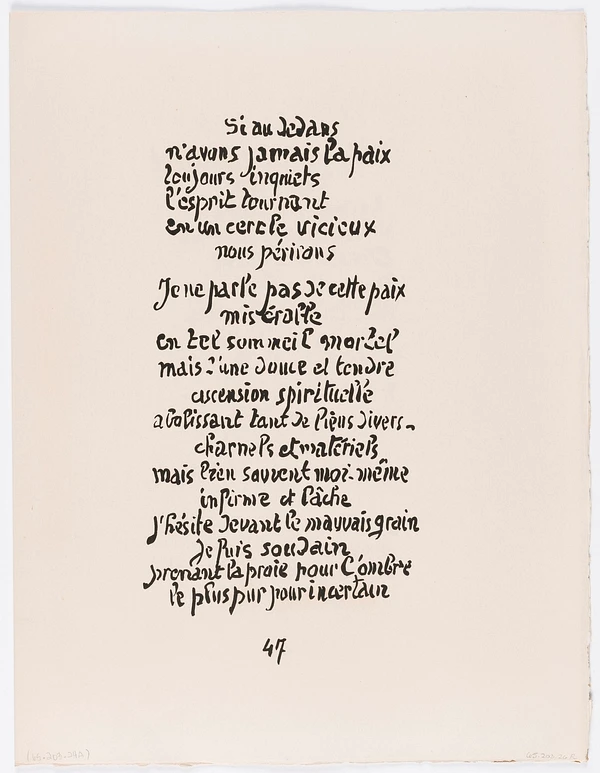 Si au dedans
n'avons jamais la paix
toujours inquiets
l'esprit tournant
en un cercle vicieux
nous périrons
Je ne parle pas de cette paix
misérable
en tel sommeil mortel
mais d'une douce et tendre
ascension spirituelle
abolissant tant de liens divers-
charnels et matériels
mais bien souvent moi-même
infirme et lâche
j'hésite devant le mauvais grain
je fuis soudain
prenant la proie pour l'ombre
le plus pur pour incertain
47